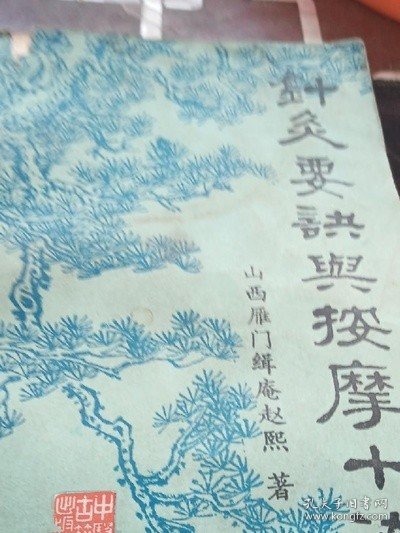 針灸要訣與按摩十
山西雁门缉庵赵熙 著
孔夫子旧书网
www.kongfz.com